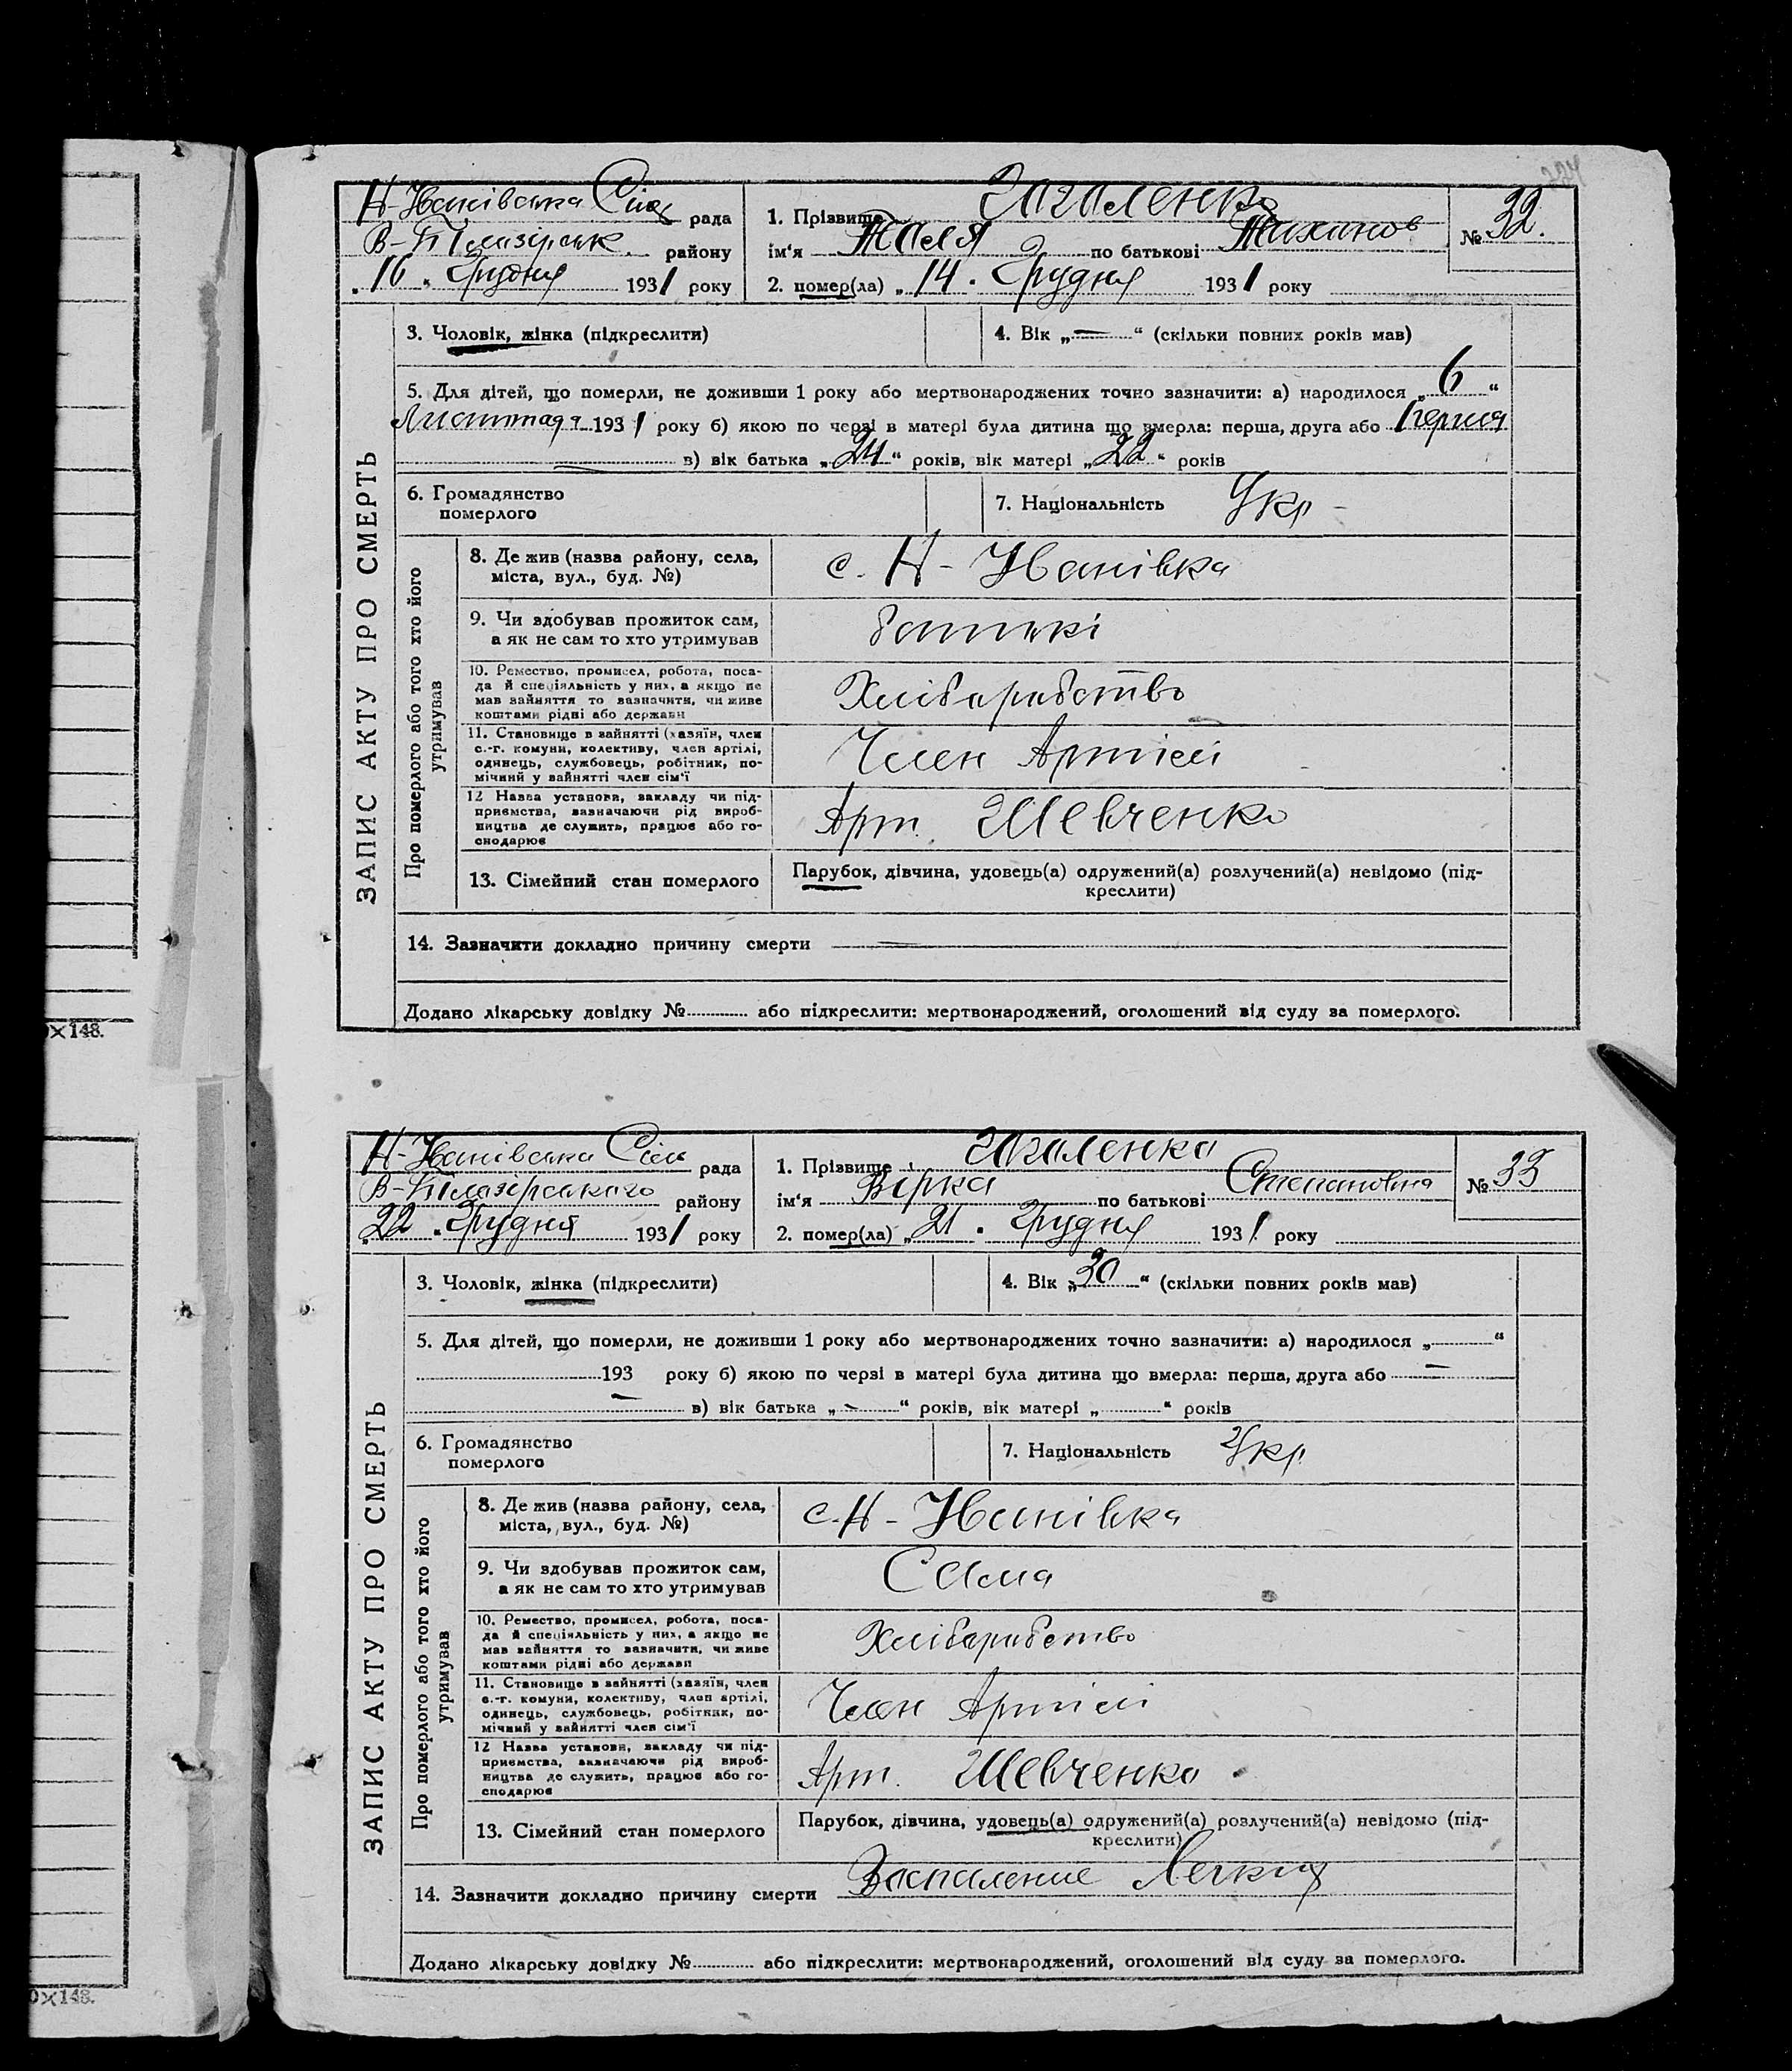 224
Н-Іванівська Сіль рада
В-Білозірськ. району
„10„ Грудня 1931 року
1. Прізвище Загаленко
ім‘я по батькові
2. помер(ла) „14. Грудня 1931 року
№ 32.
ЗАПИС АКТУ ПРО СМЕРТЬ
3. Чоловік, жінка (підкреслити)
4. Вік „—“ (скільки повних років мав)
5. Для дітей, що померли, не доживши 1 року або мертвонароджених точно зазначити: а) народилося „6“
Листопад 1931 року б) якою по черзі в матері була дитина що вмерла: перша, друга або перша
в) вік батька „24“ років, вік матері „22“ років
6. Громадянство
померлого
7. Національність Укр
Про померлого або того хто його
утримував
8. Де жив (назва району, села,
міста, вул., буд. №)
с. Н - Іванівка
9. Чи здобував прожиток сам,
а як не сам то хто утримував
батькі
10. Ремество, промисел, робота, поса-
да й спеціяльність у них, а якщо не
мав зайняття то зазначити, чи живе
коштами рідні або держави
Хліборобство
11. Становище в зайнятті (хазяїн, член
с.-г. комуни, колективу, член артілі,
одинець, службовець, робітник, по-
мічний у зайнятті член сім‘ї
Член Артілі
12 Назва установи, закладу чи під-
приємства, зазначаючи рід вироб-
ництва де служить, працює або го-
сподарює
Арт. Шевченко
13. Сімейний стан померлого
Парубок, дівчина, удовець(а) одружений(а) розлучений(а) невідомо (під-
креслити)
14. Зазначити докладно причину смерти —
Додано лікарську довідку № або підкреслити: мертвонароджений, оголошений від суду за померлого.
0×148.
Н-Іванівська Сіль рада
В-Білозірського району
„22„ Грудня 1931 року
1. Прізвище Загаленко
ім‘я Вірка по батькові Степановна
2. помер(ла) „21. Грудня 1931 року
№ 33
ЗАПИС АКТУ ПРО СМЕРТЬ
3. Чоловік, жінка (підкреслити)
4. Вік „30“ (скільки повних років мав)
5. Для дітей, що померли, не доживши 1 року або мертвонароджених точно зазначити: а) народилося „“
193 року б) якою по черзі в матері була дитина що вмерла: перша, друга або —
в) вік батька „-“ років, вік матері „“ років
6. Громадянство
померлого
7. Національність Укр
Про померлого або того хто його
утримував
8. Де жив (назва району, села,
міста, вул., буд. №)
с. Н - Іванівка
9. Чи здобував прожиток сам,
а як не сам то хто утримував
Сама
10. Ремество, промисел, робота, поса-
да й спеціяльність у них, а якщо не
мав зайняття то зазначити, чи живе
коштами рідні або держави
Хліборобство
11. Становище в зайнятті (хазяїн, член
с.-г. комуни, колективу, член артілі,
одинець, службовець, робітник, по-
мічний у зайнятті член сім‘ї
Член Артілі
12 Назва установи, закладу чи під-
приємства, зазначаючи рід вироб-
ництва де служить, працює або го-
сподарює
Арт. Шевченко
13. Сімейний стан померлого
Парубок, дівчина, удовець(а) одружений(а) розлучений(а) невідомо (під-
креслити)
14. Зазначити докладно причину смерти Воспаление Легких
Додано лікарську довідку № або підкреслити: мертвонароджений, оголошений від суду за померлого.
0×148.